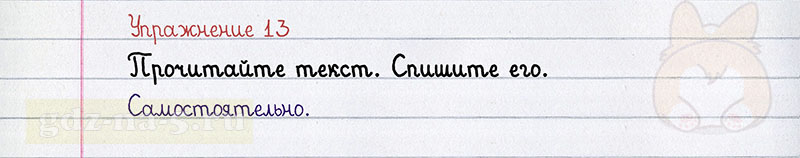 Упражнение 13
Прочитайте текст. Спишите его.
Самостоятельно.
gdz-na-5.ru